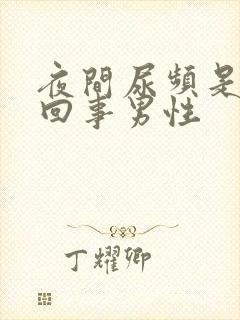 夜間尿頻是
回事男性
丁耀卿